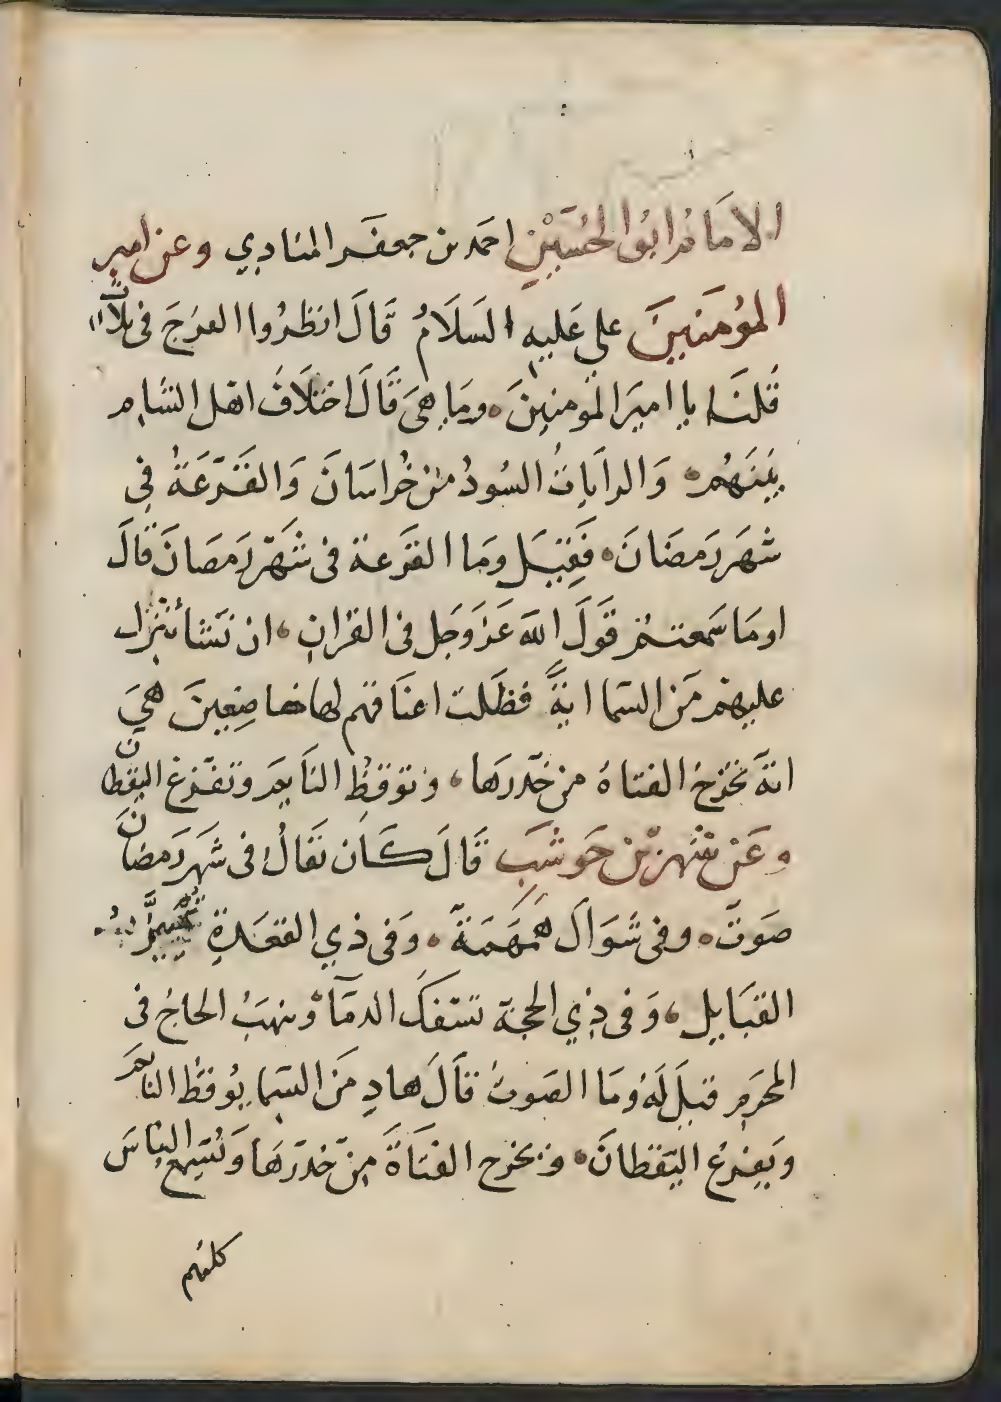 الامام ابو الحُسَيْنِ احمد بن جعفَر المنادي وعن امير
المؤمنينَ علي عَليهِ السَلَامُ قَالَ انظرُوا الفرَجَ في ثلاثٍ
قلنَا يا اميرَ المؤمنِينَ ومَا هيَ قَالَ اختلَافَ اهل الشام
بينَهُم وَالرايَاتُ السُودُ من خُراسَانَ وَالفَزعَةُ في
شهرِ رَمضَانَ فَقِيلَ ومَا الفزعة في شَهرِ رَمضَانَ قَالَ
اومَا سَمعتُم قَولَ الله عَزَوَجَل في القرانِ ان نَشا ننزل
عليهم مَن السَما ايةً فظَلت اعنَاقهم لها خاضِعِينَ هيَ
ايةٌ تُخرجُ الفتاةَ من خدرِهَا وتوقظُ النَايم وتفزع اليقظان
وعَن شهر بن حَوشَبِ قَالَ كَان يقَالُ في شَهر رَمضَان
صَوتٌ وفي شَوَال هَمهَمَةٌ وَفي ذي القعَدةِ
القبَايل وَفي ذِي الحجة تسفَكُ الدمَاءُ وينهَبُ الحاجُ في
المحرَمِ قيلَ لَهُ ومَا الصَوتُ قَالَ هادٍ مَن السَما يُوقظُ النايمَ
ويَفزعُ اليَقظَانَ ويخرج الفتَاةَ مِن خدرِهَا وَيُسَمعُ الناسَ
كلهم